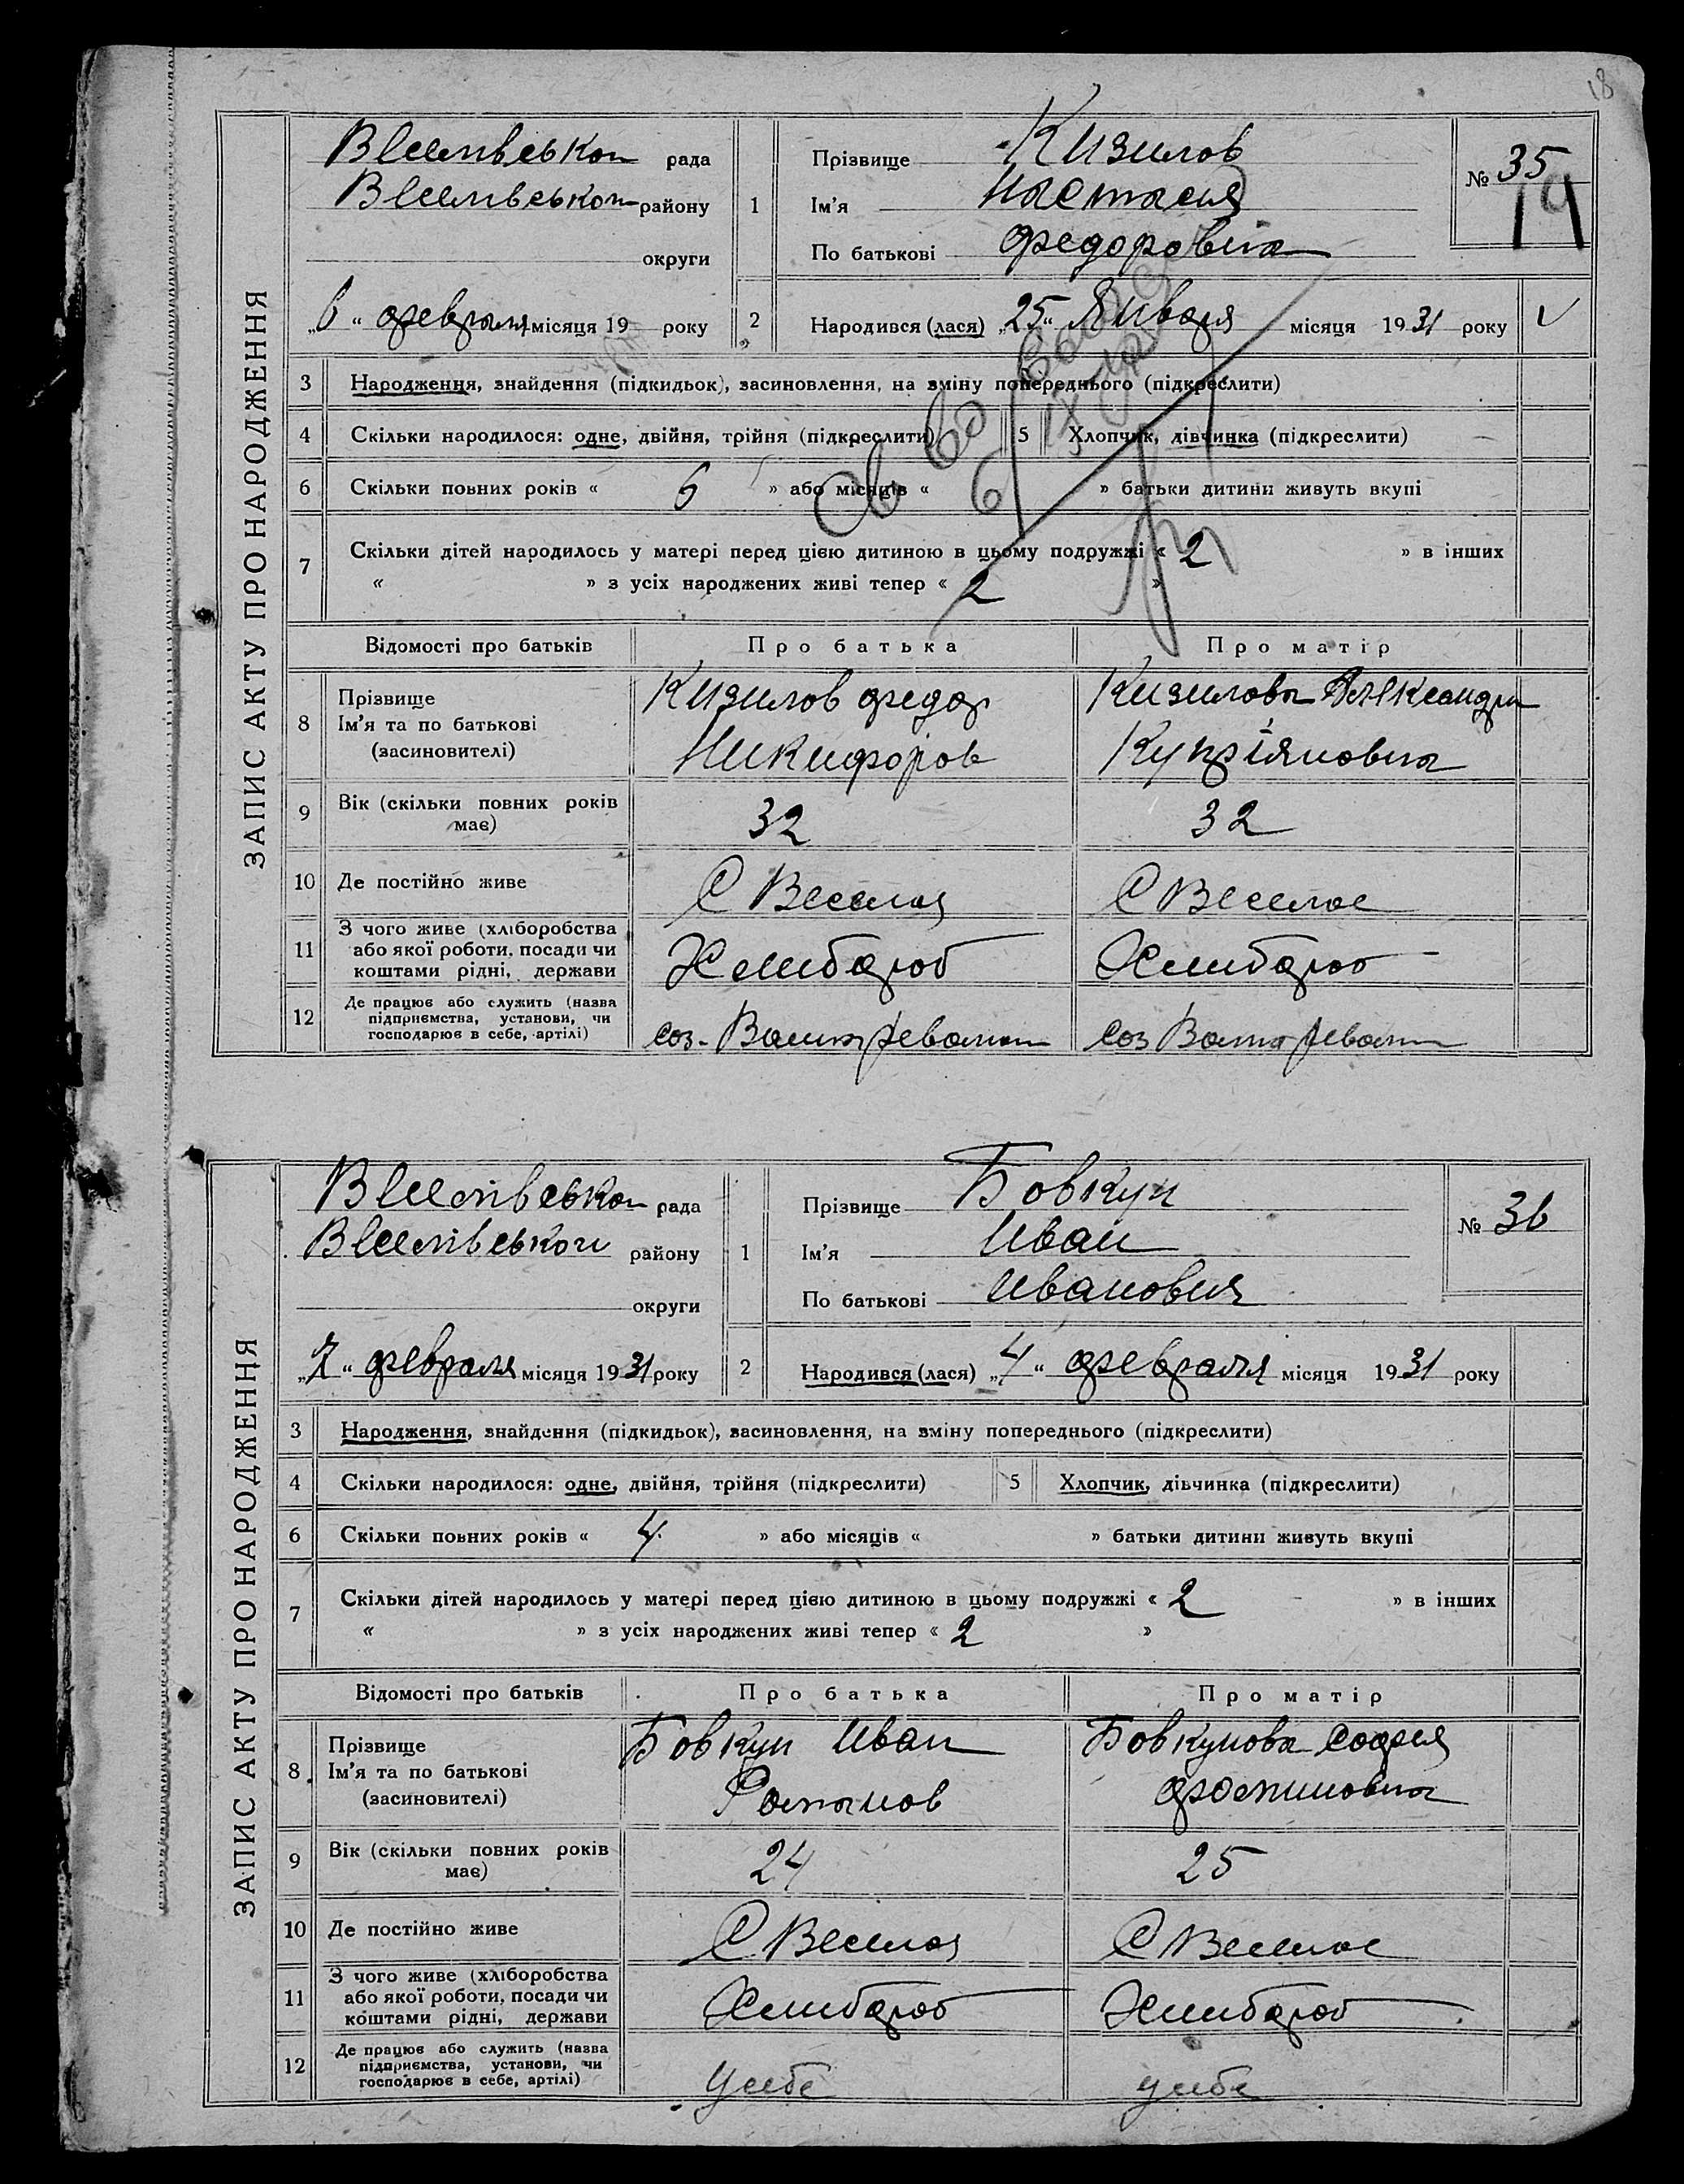 18
ЗАПИС АКТУ ПРО НАРОДЖЕННЯ
Веселівськои рада
Веселівськои району
округи
„6“ февраля місяця 19 року
1
Прізвище Кизилов
Ім'я Настасия
По батькові Федоровна
№ 35
19
2 Народився (лася) „25“ Января місяця 1931 року V
3 Народження, знайдення (підкидьок), засиновлення, на зміну попереднього (підкреслити)
4 Скільки народилося: одне, двійня, трійня (підкреслити) 5 Хлопчик, дівчинка (підкреслити)
6 Скільки повних років « 6 » або місяців « » батьки дитини живуть вкупі
7 Скільки дітей народилось у матері перед цією дитиною в цьому подружжі « 2 » в інших
« » з усіх народжених живі тепер « 2 »
Відомості про батьків Про батька Про матір
8 Прізвище
Ім'я та по батькові
(засиновителі)
Кизилов Федор
Никифоров
Кизилова Александра
Купріяновна
9 Вік (скільки повних років
має)
32 32
10 Де постійно живе С Веселое С Веселое
11 З чого живе (хліборобства
або якої роботи, посади чи
коштами рідні, держави
Хлибороб Хлибороб
12 Де працює або служить (назва
підприємства, установи, чи
господарює в себе, артілі)
Соз. Соз
ЗАПИС АКТУ ПРО НАРОДЖЕННЯ
Веселівськои рада
Веселівськои району
округи
„7“ февраля місяця 1931 року
1
Прізвище Бовкун
Ім'я Иван
По батькові Иванович
№ 36
2 Народився (лася) „4“ февраля місяця 1931 року
3 Народження, знайдення (підкидьок), засиновлення, на зміну попереднього (підкреслити)
4 Скільки народилося: одне, двійня, трійня (підкреслити) 5 Хлопчик, дівчинка (підкреслити)
6 Скільки повних років « 4 » або місяців « » батьки дитини живуть вкупі
7 Скільки дітей народилось у матері перед цією дитиною в цьому подружжі « 2 » в інших
« » з усіх народжених живі тепер « 2 »
Відомості про батьків Про батька Про матір
8 Прізвище
Ім'я та по батькові
(засиновителі)
Бовкун Иван
Романов
Бовкунова Софея
Фоминовна
9 Вік (скільки повних років
має)
24 25
10 Де постійно живе С Веселое С Веселое
11 З чого живе (хліборобства
або якої роботи, посади чи
коштами рідні, держави
Хлибороб Хлибороб
12 Де працює або служить (назва
підприємства, установи, чи
господарює в себе, артілі)
Усебе усебе